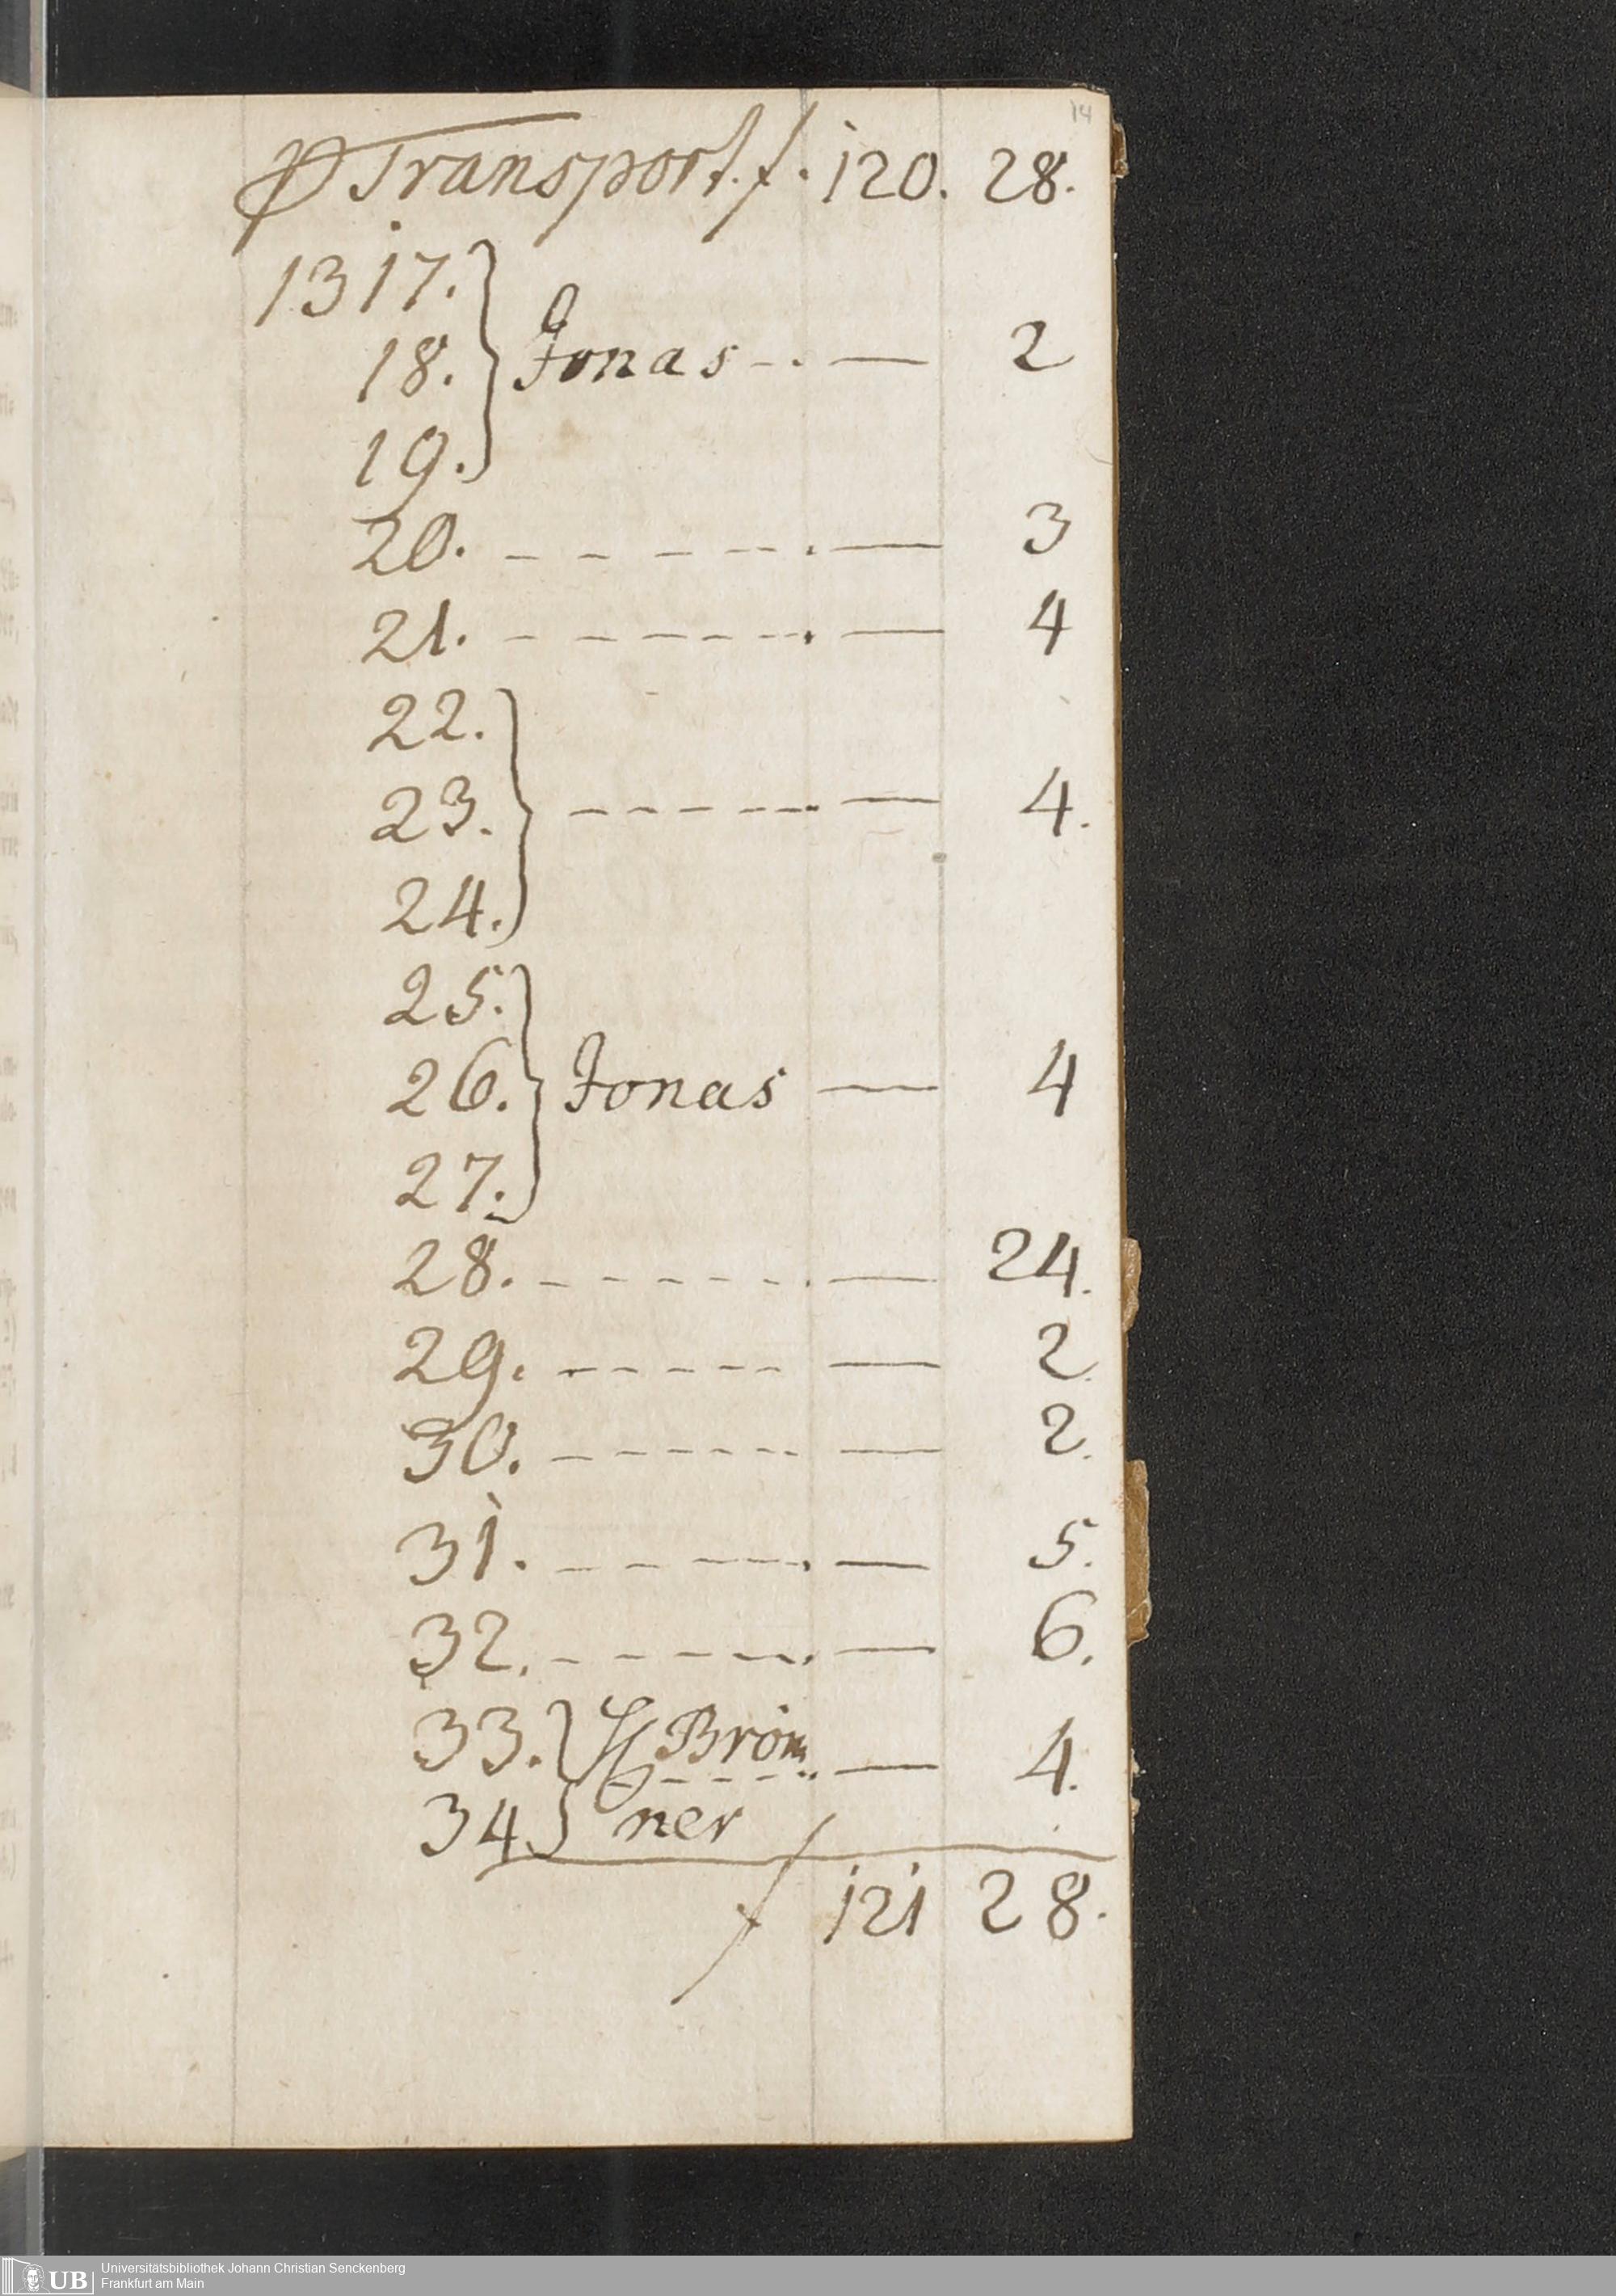 14
P Transport. f. 120. 28.
1317.
18. } Jonas - . — 2
19.
20. - - - - - . — 3
21. - - - - - . — 4
22.
23. } - - - - - . — 4.
24.
25.
26. } Jonas — 4
27.
28. - - - - - - . — 24.
29. - - - - - — 2.
30. - - - - - - — 2.
31. - - - - - . — 5.
32. - - - - - . — 6.
33. } H Bröm
- - - - .. — 4.
34 } ner
f 121 28.
UB
Universitätsbibliothek Johann Christian Senckenberg
Frankfurt am Main